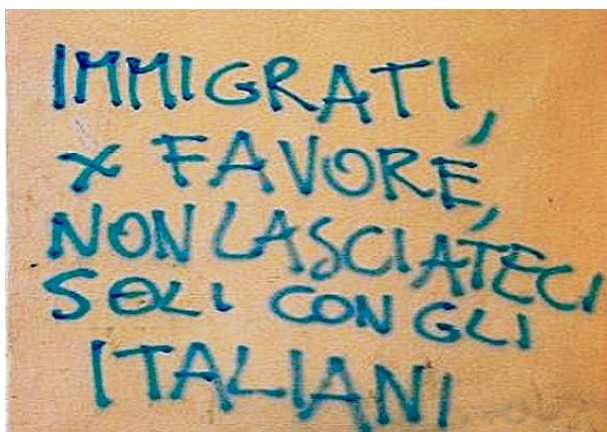 IMMIGRATI,
x FAVORE,
NON LASCIATECI
SOLI CON GLI
ITALIANI